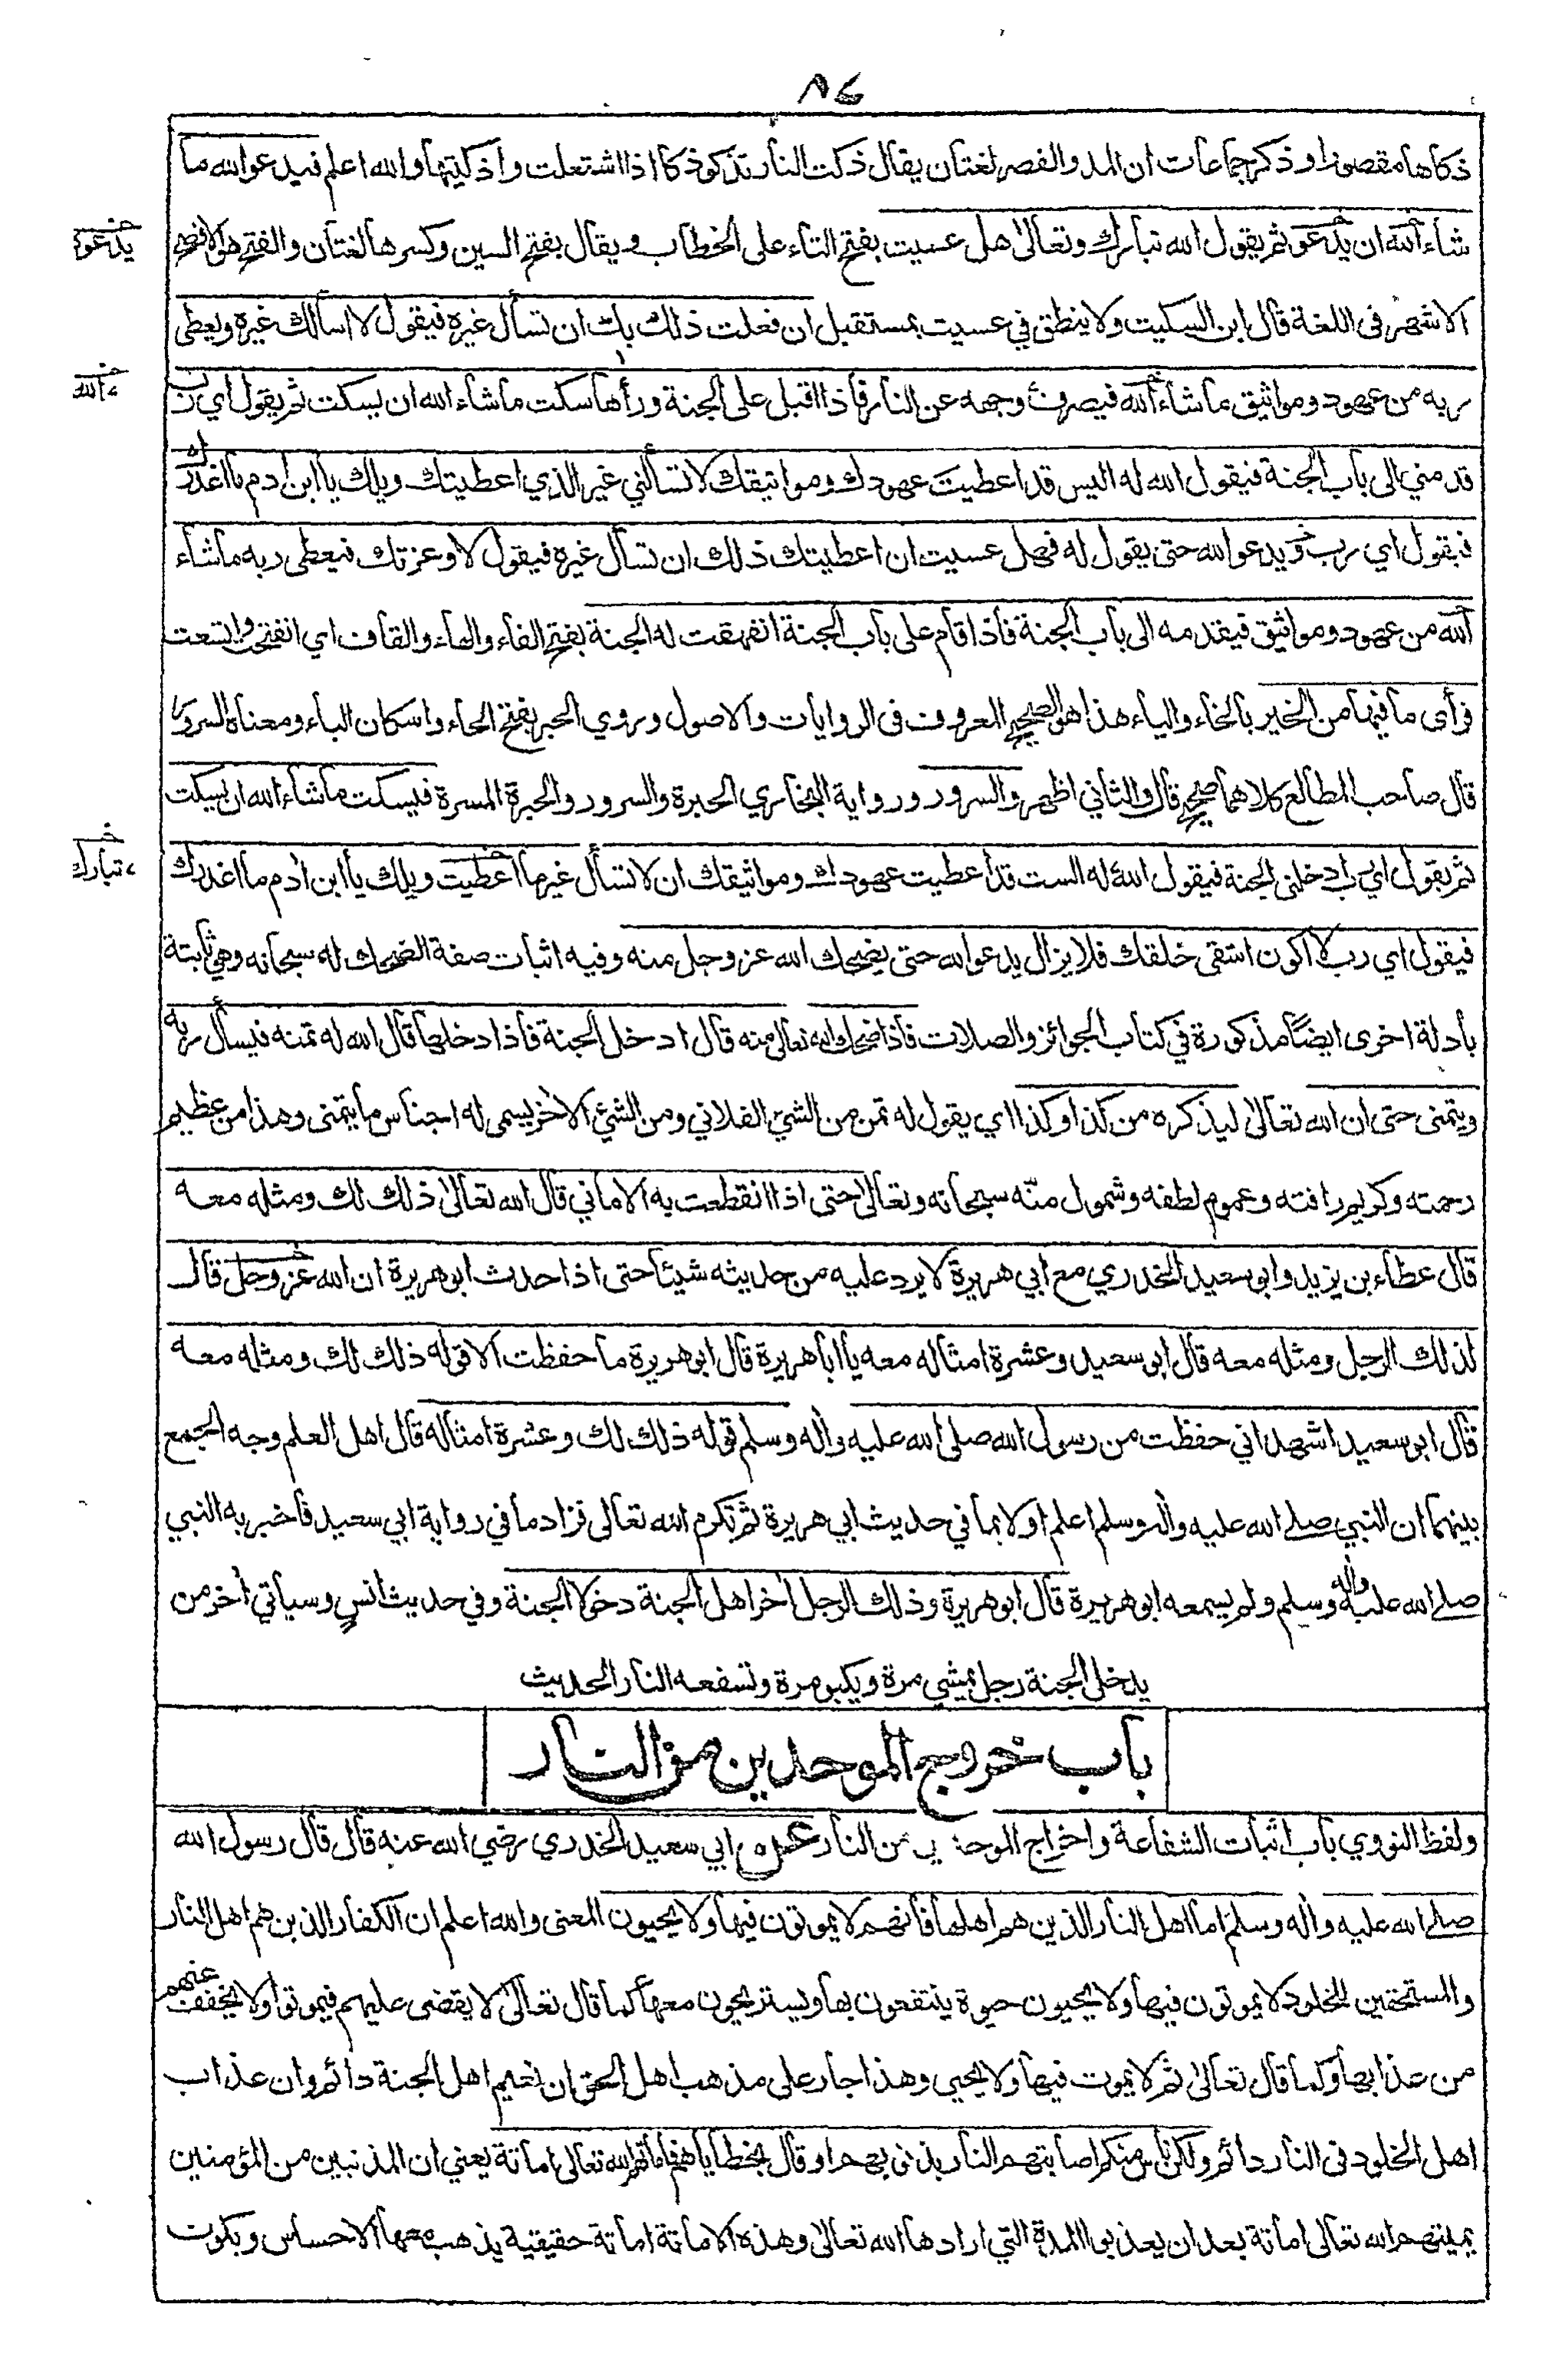 ٨٤
ذكاها مقصورا وذكر جماعات ان المد والقصر لغتان يقال ذكت النار تذكو ذكا اذا اشتعلت واذكيتها والله اعلم فيدعو الله ما
شاء الله ان يدعو ثم يقول الله تبارك وتعالى هل عسيت بفتح التاء على الخطاب ويقال بفتح السين وكسرها لغتان والفتح هو الافصح
يدعوه
الاشهر في اللغة قال ابن السكيت ولا ينطق في عسيت بمستقبل ان فعلت ذلك بك ان تسأل غيره فيقول لا اسألك غيره ويعطي
ربه من عهود ومواثيق ما شاء الله فيصرف وجهه عن النار فاذا اقبل على الجنة ورأها سكت ما شاء الله ان يسكت ثم يقول اي رب
الله
قدمني الى باب الجنة فيقول الله له اليس قد اعطيت عهودك ومواثيقك لا تسألني غير الذي اعطيتك ويلك يا ابن ادم ما اغدرك
فيقول اي رب ويدعو الله حتى يقول له فهل عسيت ان اعطيتك ذلك ان تسأل غيره فيقول لا وعزتك فيعطي ربه ما شاء
الله من عهود ومواثيق فيقدمه الى باب الجنة فاذا قام على باب الجنة انفهقت له الجنة بفتح الفاء والهاء والقاف اي انفتحت واتسعت
فرأى ما فيها من الخير بالخاء والياء هذا هو الصحيح المعروف في الروايات والاصول وروي الحبر بفتح الحاء واسكان الباء ومعناه السرور
قال صاحب المطالع كلاهما صحيح قال والثاني اظهر والسرور ورواية البخاري الحبرة والسرور والحبرة المسرة فيسكت ما شاء الله ان يسكت
ثم يقول اي رب ادخلني الجنة فيقول الله له الست قد اعطيت عهودك ومواثيقك ان لا تسأل غير ما اعطيت ويلك يا ابن ادم ما اغدرك
تبارك
فيقول اي رب لا اكون اشقى خلقك فلا يزال يدعو الله حتى يضحك الله عز وجل منه وفيه اثبات صفة الضحك له سبحانه وهي ثابتة
بأدلة اخرى ايضًا مذكورة في كتاب الجوائز والصلات فاذا ضحك الله تعالى منه قال ادخل الجنة فاذا دخلها قال الله له تمنه فيسأل ربه
ويتمنى حتى ان الله تعالى ليذكره من كذا وكذا اي يقول له تمن من الشئ الفلاني ومن الشئ الاخر يسمي له اجناس ما يتمنى وهذا من عظيم
رحمته وكريم رافته وعموم لطفه وشمول منّه سبحانه وتعالى حتى اذا انقطعت به الاماني قال الله تعالى ذلك لك ومثله معه
قال عطاء بن يزيد وابو سعيد الخدري مع ابي هريرة لا يرد عليه من حديثه شيئا حتى اذا حدث ابو هريرة ان الله عز وجل قال
لذلك الرجل ومثله معه قال ابو سعيد وعشرة امثاله معه يا ابا هريرة قال ابو هريرة ما حفظت الا قوله ذلك لك ومثله معه
قال ابو سعيد اشهد اني حفظت من رسول الله صلى الله عليه واله وسلم قوله ذلك لك وعشرة امثاله قال اهل العلم وجه الجمع
بينهما ان النبي صلى الله عليه واله وسلم اعلم اولا بما في حديث ابي هريرة ثم تكرم الله تعالى فزاد ما في رواية ابي سعيد فأخبر به النبي
صلى الله عليه واله وسلم ولم يسمعه ابو هريرة قال ابو هريرة وذلك الرجل اخر اهل الجنة دخولا الجنة وفي حديث انس وسيأتي اخر من
يدخل الجنة رجل يمشي مرة ويكبو مرة وتسفعه النار الحديث
باب خروج الموحدين من النار
ولفظ النووي باب اثبات الشفاعة واخراج الموحدين من النار عن ابي سعيد الخدري رضي الله عنه قال قال رسول الله
صلى الله عليه واله وسلم اما اهل النار الذين هم اهلها فانهم لا يموتون فيها ولا يحيون المعنى والله اعلم ان الكفار الذين هم اهل النار
والمستحقين للخلود لا يموتون فيها ولا يحيون حيوة ينتفعون بها ويستريحون معها كما قال تعالى لا يقضى عليهم فيموتوا ولا يخفف عنهم
من عذابها وكما قال تعالى ثم لا يموت فيها ولا يحيى وهذا جار على مذهب اهل الحق ان نعيم اهل الجنة دائم وان عذاب
اهل الخلود في النار دائم ولكن ناس منكم اصابتهم النار بذنوبهم او قال بخطاياهم فاماتهم الله تعالى اماتة يعني ان المذنبين من المؤمنين
يميتهم الله تعالى اماتة بعد ان يعذبوا المدة التي ارادها الله تعالى وهذه الاماتة اماتة حقيقية يذهب معها الاحساس ويكون